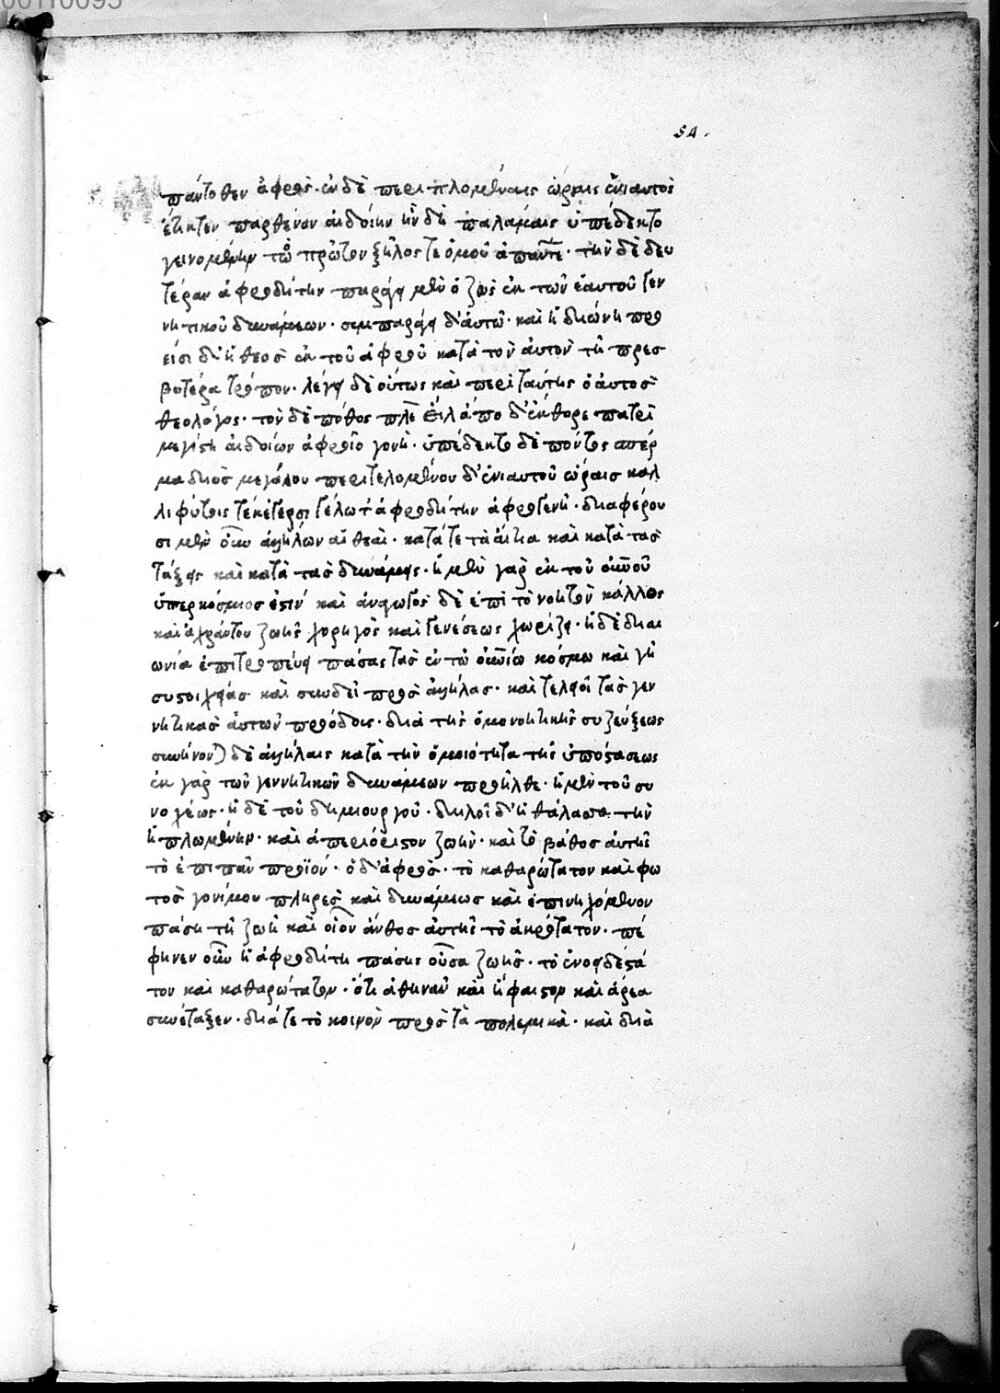 54.
πάντοθεν ἀφρός· ἐν δὲ περιπλομέναις ὥραις ἐνιαυτὸς
ἔτικτεν παρθένον αἰδοίην ἣν δὲ παλάμαις ὑπέδεκτο
γεινομένην τὸ πρῶτον ζῆλός τε ὁμοῦ ἀπάντε· τὴν δὲ δευ
τέραν ἀφροδίτην παράγει μὲν ὁ ζεὺς ἐκ τῶν ἑαυτοῦ γεν
νητικοῦ δυνάμεων· συμπαράγει δ' αὐτῷ· καὶ ἡ διώνη προ
εισι δ' ἡ θεὸς ἐκ τοῦ ἀφροῦ κατὰ τὸν αὐτὸν τῇ πρεσ
βυτέρα τρόπον· λέγει δὲ οὕτως καὶ περὶ ταύτης ὁ αὐτὸς
θεολόγος· τὸν δὲ πόθος πλέ εἷλ ἀπὸ δ' ἔκθορε πατρὶ
μεγίστη αἰδοίων ἀφροῖο γονὴ· ὑπέδεκτο δὲ πόντος σπέρ
μα διὸς μεγάλου περιτελομένου δ' ἐνιαυτοῦ ὥραις καλ
λιφύτοις τέκ
ἀφροδίτην ἀφρογενῆ· διαφέρου
σι μὲν οὖν ἀλλήλων αἱ θεαὶ· κατά τε τὰ αἴτια καὶ κατὰ τὰς
τάξεις καὶ κατὰ τὰς δυνάμεις· ἡ μὲν γὰρ ἐκ τοῦ οὐνοῦ
ὑπερκόσμιος ἐστιν καὶ ἀναγωγὸς δὲ ἐπὶ τὸ νοητὸν κάλλος
καὶ ἀχράντου ζωῆς χορηγὸς καὶ γενέσεως χωρίζει· ἡ δὲ διαι
ωνία ἐπιτροπεύει πάσας τὰς ἐν τῷ οὐνίῳ κόσμῳ καὶ γῇ
συστοιχείας καὶ συνδεῖ πρὸς ἀλλήλας· καὶ τελειοῖ τὰς γεν
νητικὰς αὐτῶν προόδους· διὰ τῆς ὁμονοητικῆς συζεύξεως
συνήνον) δὲ ἀλλήλαις κατὰ τὴν ὁμοιότητα τῆς ὑποστάσεως
ἐκ γὰρ τῶν γεννητικῶν δυνάμεων προῆλθε· ἡ μὲν τοῦ συ
νοχέως· ἡ δὲ τοῦ δημιουργοῦ· δηλοῖ δ' ἡ θάλασσα τὴν
ἡπλωμένην· καὶ ἀπεριόριστον ζωὴν· καὶ τὸ βάθος αὐτῆς
τὸ ἐπιπᾶν προϊὸν· ὁ δ' ἀφρὸς· τὸ καθαρώτατον καὶ φω
τὸς γονίμου πλῆρες καὶ δυνάμεως καὶ ἐπινηχόμενον
πάσῃ τῇ ζωῇ καὶ οἷον ἄνθος αὐτῆς τὸ ἀκρότατον· πέ
φηνεν οὖν ἡ ἀφροδίτη πάσης οὖσα ζωῆς· τὸ ἑνοειδέστα
τον καὶ καθαρώτατον· ὅτι ἀθηνᾶν καὶ ἥφαιστον καὶ ἄρεα
συνέταξεν· διά τε τὸ κοινὸν πρὸς τὰ πολεμικὰ· καὶ διὰ